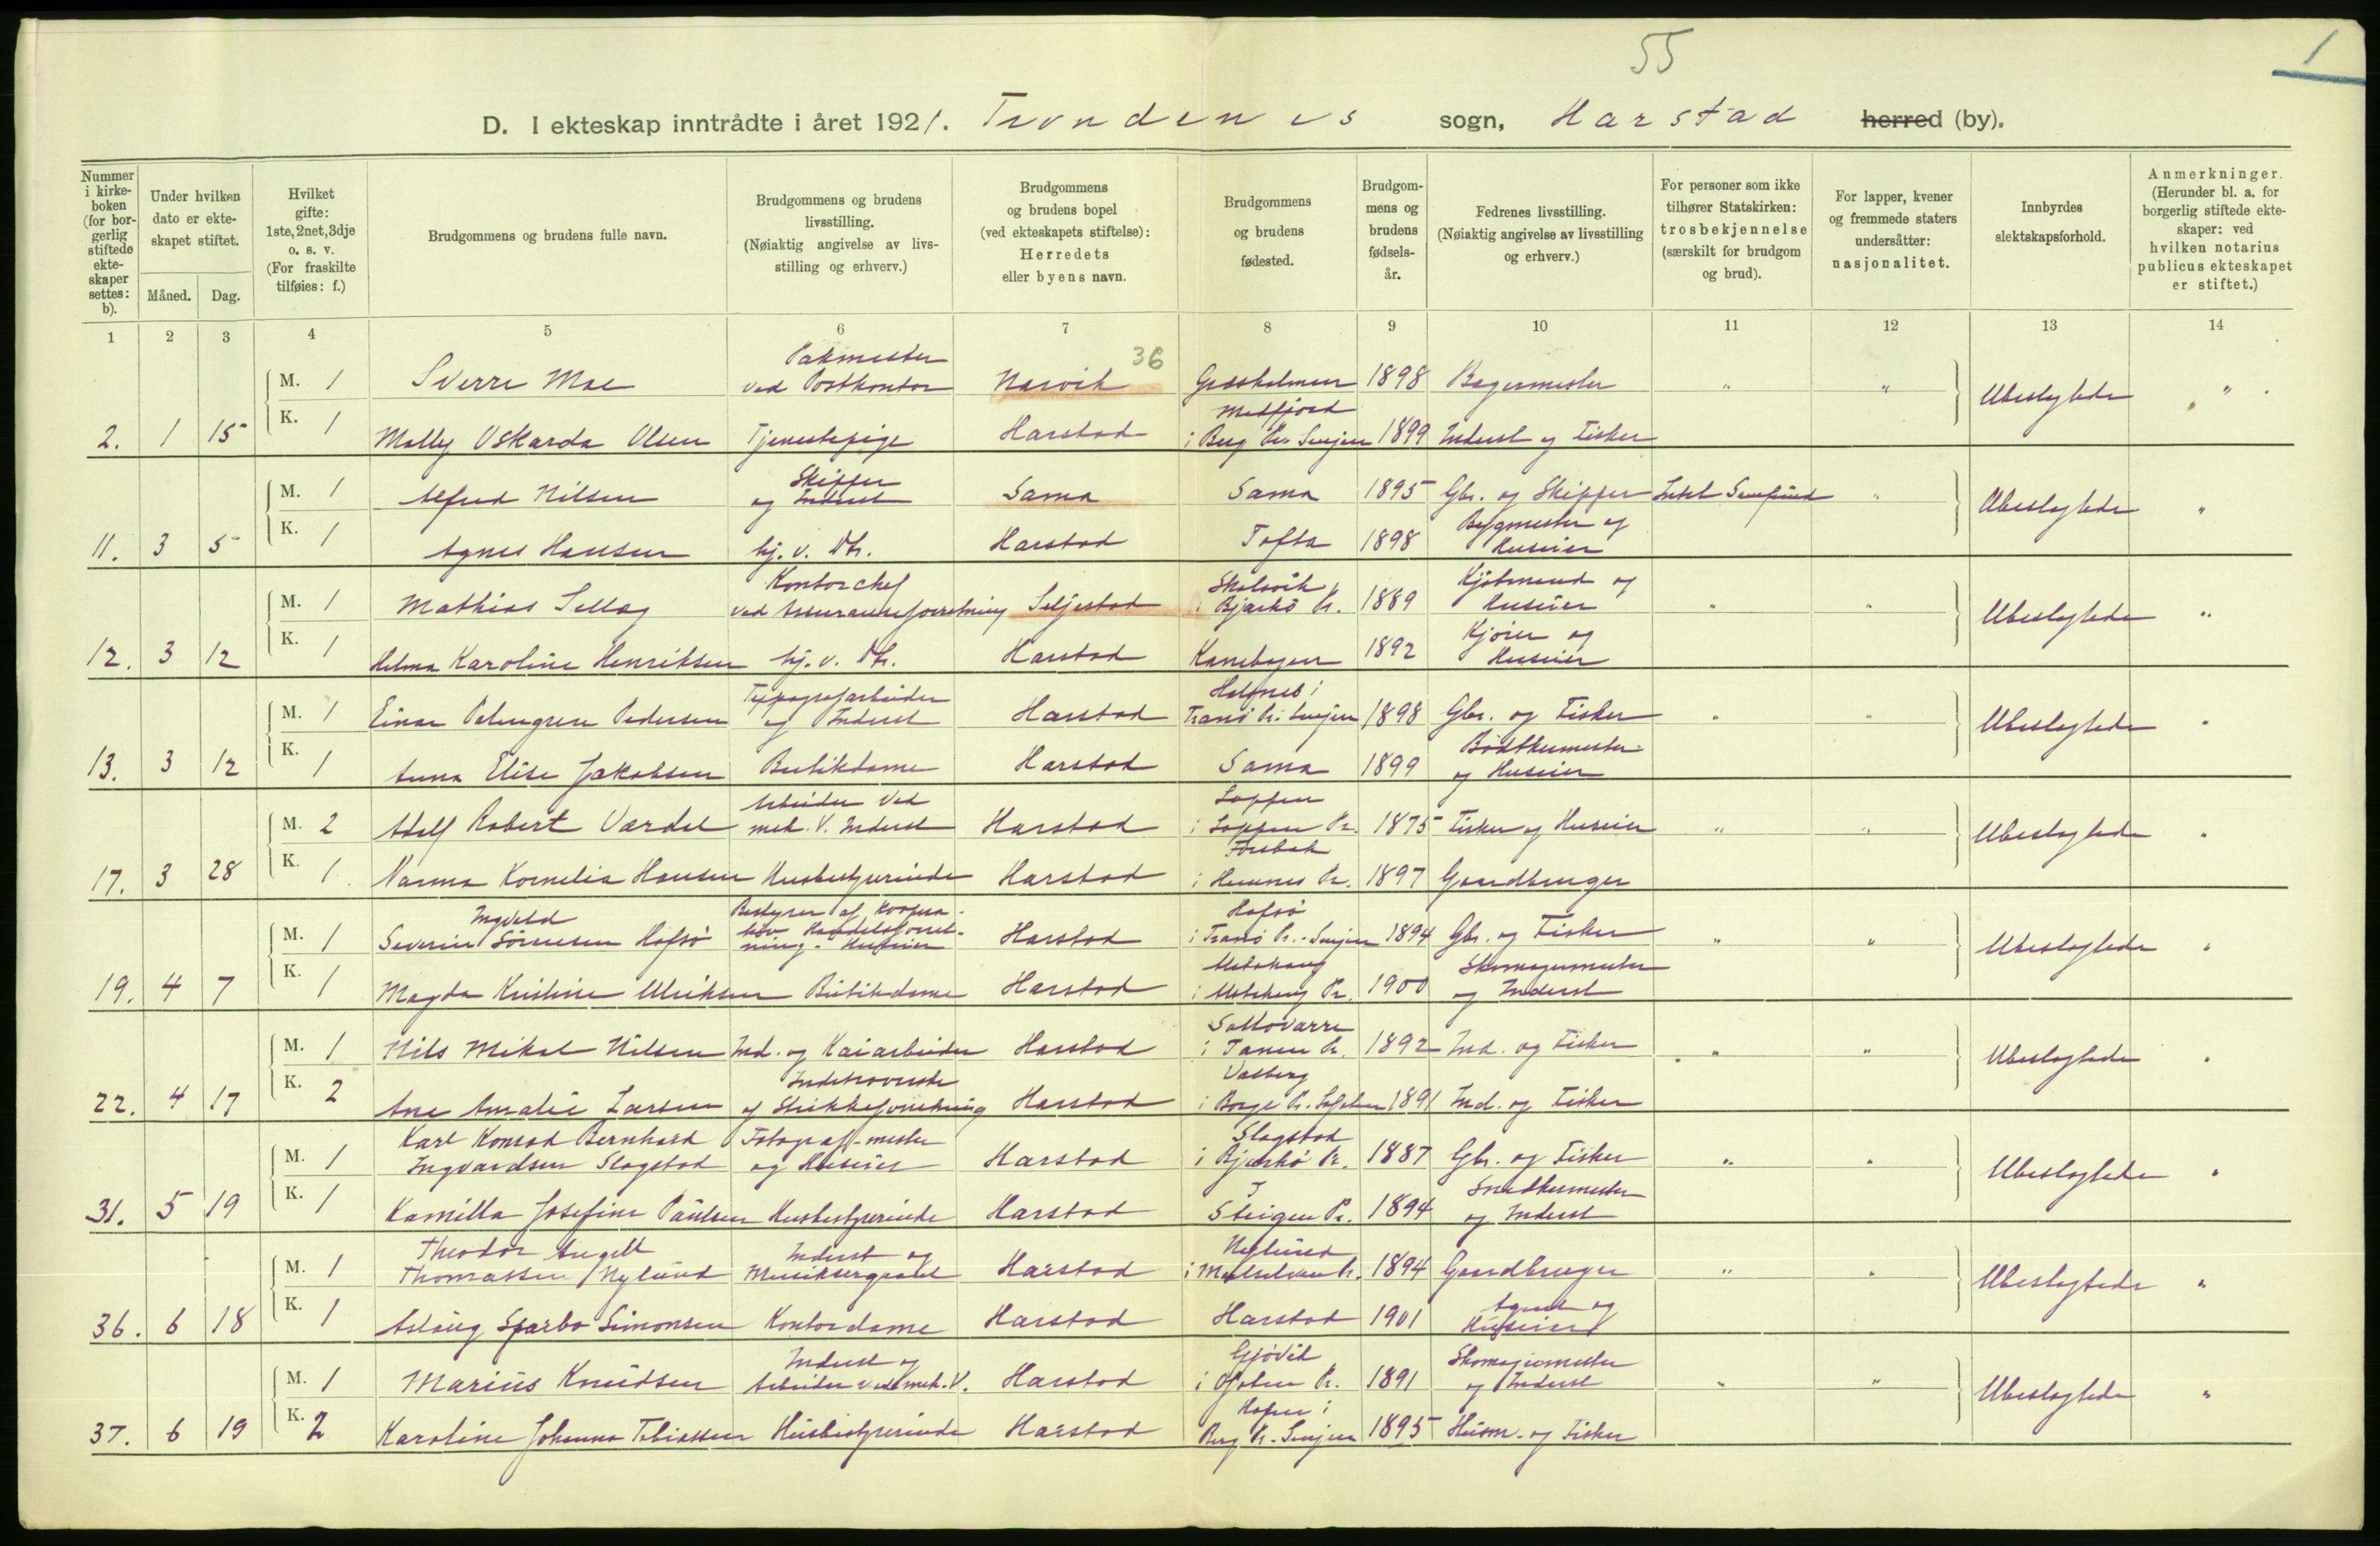 55
1
D. I ekteskap inntrådte i året 1921. Trondenes sogn, Harstad herred (by).
Nummer i kirkeboken (for borgerlig stiftede ekteskaper settes: b).
Under hvilken dato er ekteskapet stiftet.
Måned. Dag.
Hvilket gifte: 1ste, 2net, 3dje o. s. v. (For fraskilte tilføies: f.)
Brudgommens og brudens fulle navn.
Brudgommens og brudens livsstilling. (Nøiaktig angivelse av livsstilling og erhverv.)
Brudgommens og brudens bopel (ved ekteskapets stiftelse): Herredets eller byens navn.
Brudgommens og brudens fødested.
Brudgommens og brudens fødselsår.
Fedrenes livsstilling. (Nøiaktig angivelse av livsstilling og erhverv.)
For personer som ikke tilhører Statskirken: trosbekjennelse (særskilt for brudgom og brud).
For lapper, kvener og fremmede staters undersåtter: nasjonalitet.
Innbyrdes slektskapsforhold.
Anmerkninger. (Herunder bl. a. for borgerlig stiftede ekteskaper: ved hvilken notarius publicus ekteskapet er stiftet.)
1 2 3 4 5 6 7 8 9 10 11 12 13 14
36
M. 1 Sverre Moe Pakmester ved Postkontor Narvik 1898 Bagermester " " Ubeslegtede "
2. 1 15 K. 1 Molly Oskarda Olsen Tjenestepige Harstad Medfjord i Berg Pr. Senjen 1899 Inderst og Fisker
M. 1 Alfred Nilsen Skipper og Inderst Sama Sama 1895 Gbr. og Skipper " Ubeslegtede "
11. 3 5 K. 1 Agnes Hansen hj. v. Dtr. Harstad Tofta 1898 Bygmester og Huseier
M. 1 Mathias Sellæg Kontorchef ved Assuranseforretning Seljestad i Bjarkö Pr. 1889 Kjøbmand og Huseier " " Ubeslegtede "
12. 3 12 K. 1 Helma Karoline Henriksen hj. v. Dtr. Harstad Kanebogen 1892 Kjører og Huseier
M. 1 Einar Palmgren Pedersen Typografarbeider og Inderst Harstad Tranö Pr. Senjen 1898 Gbr. og Fisker " " Ubeslegtede "
13. 3 12 K. 1 Anna Elise Jakobsen Butikdame Harstad Sama 1899 Bödkermester og Huseier
M. 2 Adolf Robert Vardal Arbeider ved mek. V. Inderst Harstad Loppen i Loppen Pr. 1875 Fisker og Huseier " " Ubeslegtede "
17. 3 28 K. 1 Nanna Kornelia Hansen Husbestyrerinde Harstad i Hemnes Pr. 1897 Gaardbruger
M. 1 Severin Ingvald Sörensen Hofsö Bestyrer af Kooperativ Handelsforretning - Huseier Harstad Hofsö i Tranö Pr. - Senjen 1894 Gbr. og Fisker " " Ubeslegtede "
19. 4 7 K. 1 Magda Kristine Ulriksen Butikdame Harstad Alstahaug i Alstahaug Pr. 1900 Skomagermester og Inderst
M. 1 Nils Mikal Nilsen Ind. og Kaiarbeider Harstad i Tanen Pr. 1892 Ind. og Fisker " " Ubeslegtede "
22. 4 17 K. 2 Ane Amalie Larsen Indehaverske af Strikkeforretning Harstad Valberg i Borge Pr. Lofoten 1891 Ind. og Fisker
M. 1 Karl Konrad Bernhard Ingvardsen Slagstad Fotograf-mester og Huseier Harstad Slagstad i Bjarkö Pr. 1887 Gbr. og Fisker " " Ubeslegtede "
31. 5 19 K. 1 Kamilla Josefine Paulsen Husbestyrerinde Harstad I Steigen Pr. 1894 Snedkermester og Inderst
M. 1 Theodor Angell Thomassen Nylund Inderst og Musiksergeant Harstad Nylund i Maalselven Pr. 1894 Gaardbruger " " Ubeslegtede "
36. 6 18 K. 1 Aslaug Sparbo Simonsen Kontordame Harstad Harstad 1901 Agent og Huseier
M. 1 Marius Knudsen Inderst og Arbeider ved mek. V. Harstad Gjövik i Ofoten Pr. 1891 Skomagermester og Inderst " " Ubeslegtede "
37. 6 19 K. 2 Karoline Johanna Tobiassen Husbestyrerinde Harstad i Berg Pr. Senjen 1895 Husm. og Fisker